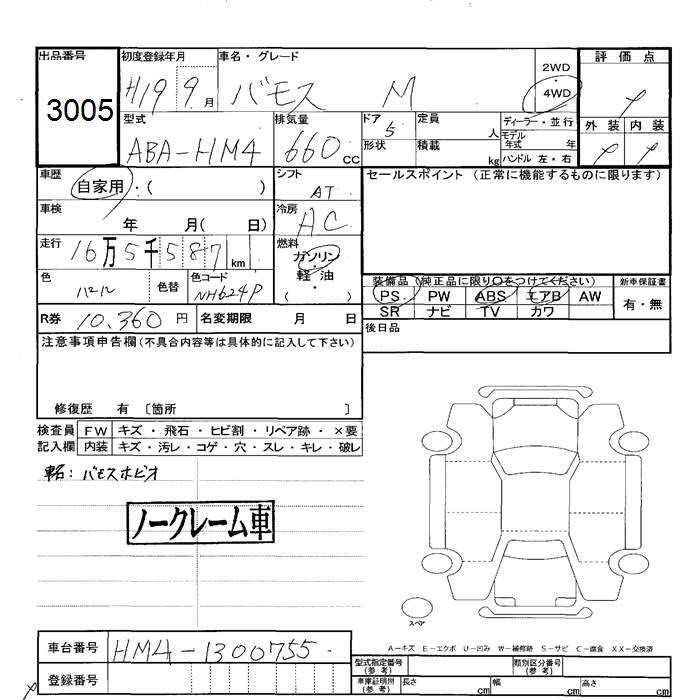 出品番号 初度登録年月 車名・グレード 評価点
3005 H19 9月 バモス M 2WD
4WD
型式 排気量 ドア 定員 ディーラー・並行 外装 内装
ABA-HM4 660cc 5 人 モデル年式 年
形状 積載 kg ハンドル 左・右
車歴 シフト セールスポイント(正常に機能するものに限ります)
自家用・( ) AT
車検 冷房
年 月( 日) AC
走行 燃料
16万5千587km ガソリン
・
軽油
・( )
色 色替 色コード 装備品(純正品に限り○をつけてください) 新車保証書
パール NH624P PS PW ABS エアB AW 有・無
SR ナビ TV カワ
R券 10,360円 名変期限 月 日 後日品
注意事項申告欄(不具合内容等は具体的に記入して下さい)
修復歴 有 〔箇所 〕
検査員 FW キズ・飛石・ヒビ割・リペア跡・×要
記入欄 内装 キズ・汚レ・コゲ・穴・スレ・キレ・破レ
車名:バモスホビオ
ノークレーム車
スペア
A-キズ E-エクボ U-凹み W-補修跡 S-サビ C-腐食 XX-交換済
車台番号 HM4-1300755
登録番号
型式指定番号(参考) 類別区分番号(参考)
車庫証明用(参考) 長さ cm 幅 cm 高さ cm